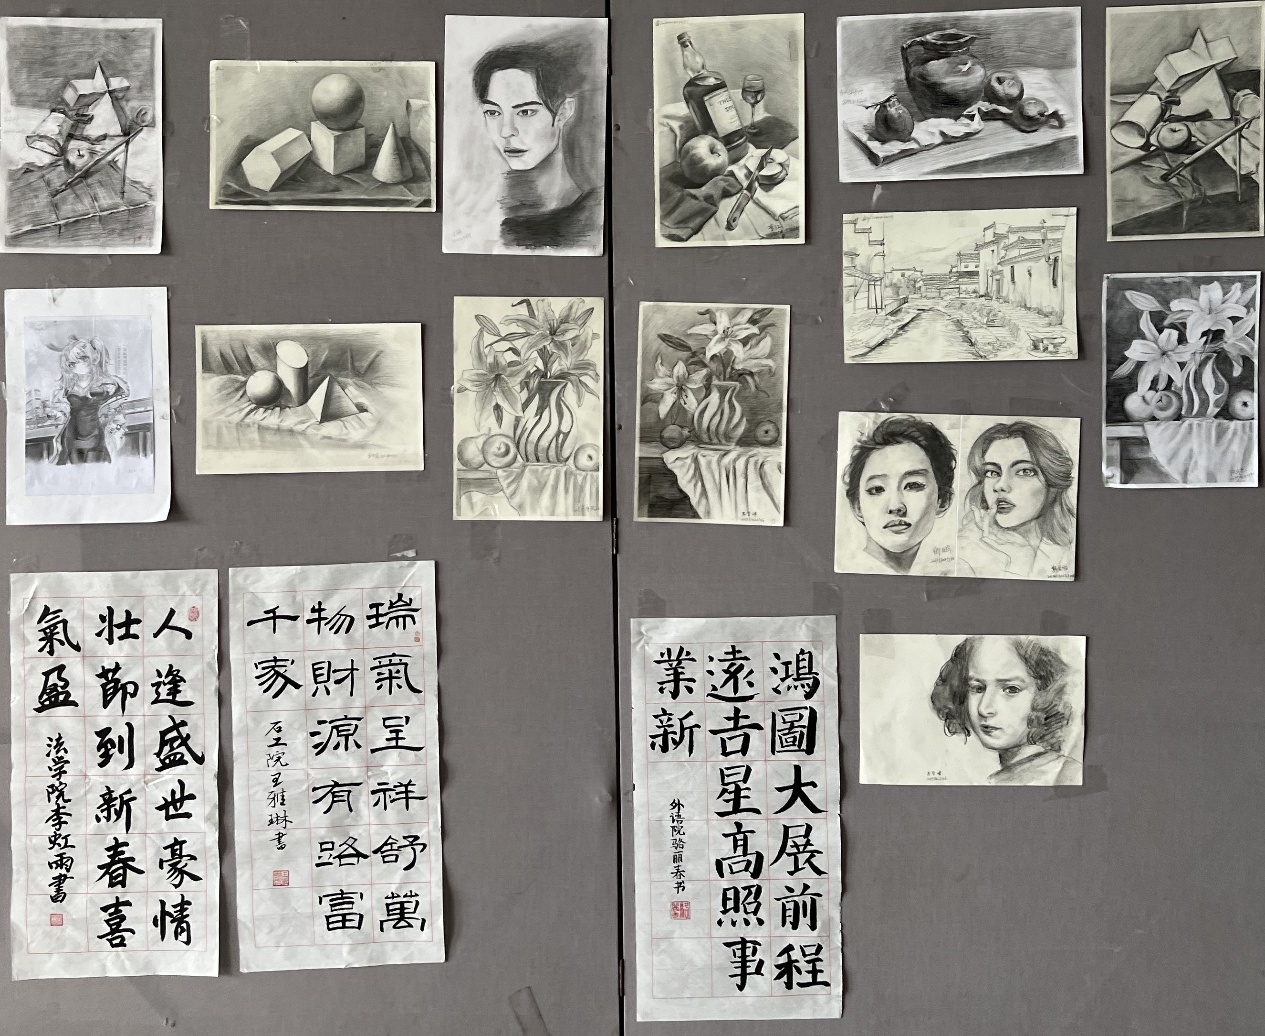 人逢盛世豪情
壯節到新春喜
氣盈
法学院李虹雨書
瑞氣呈祥舒萬
物財源有路富
千家
石工院王雅琳書
鴻圖大展前程
遠吉星高照事
業新
外语院骆丽春书